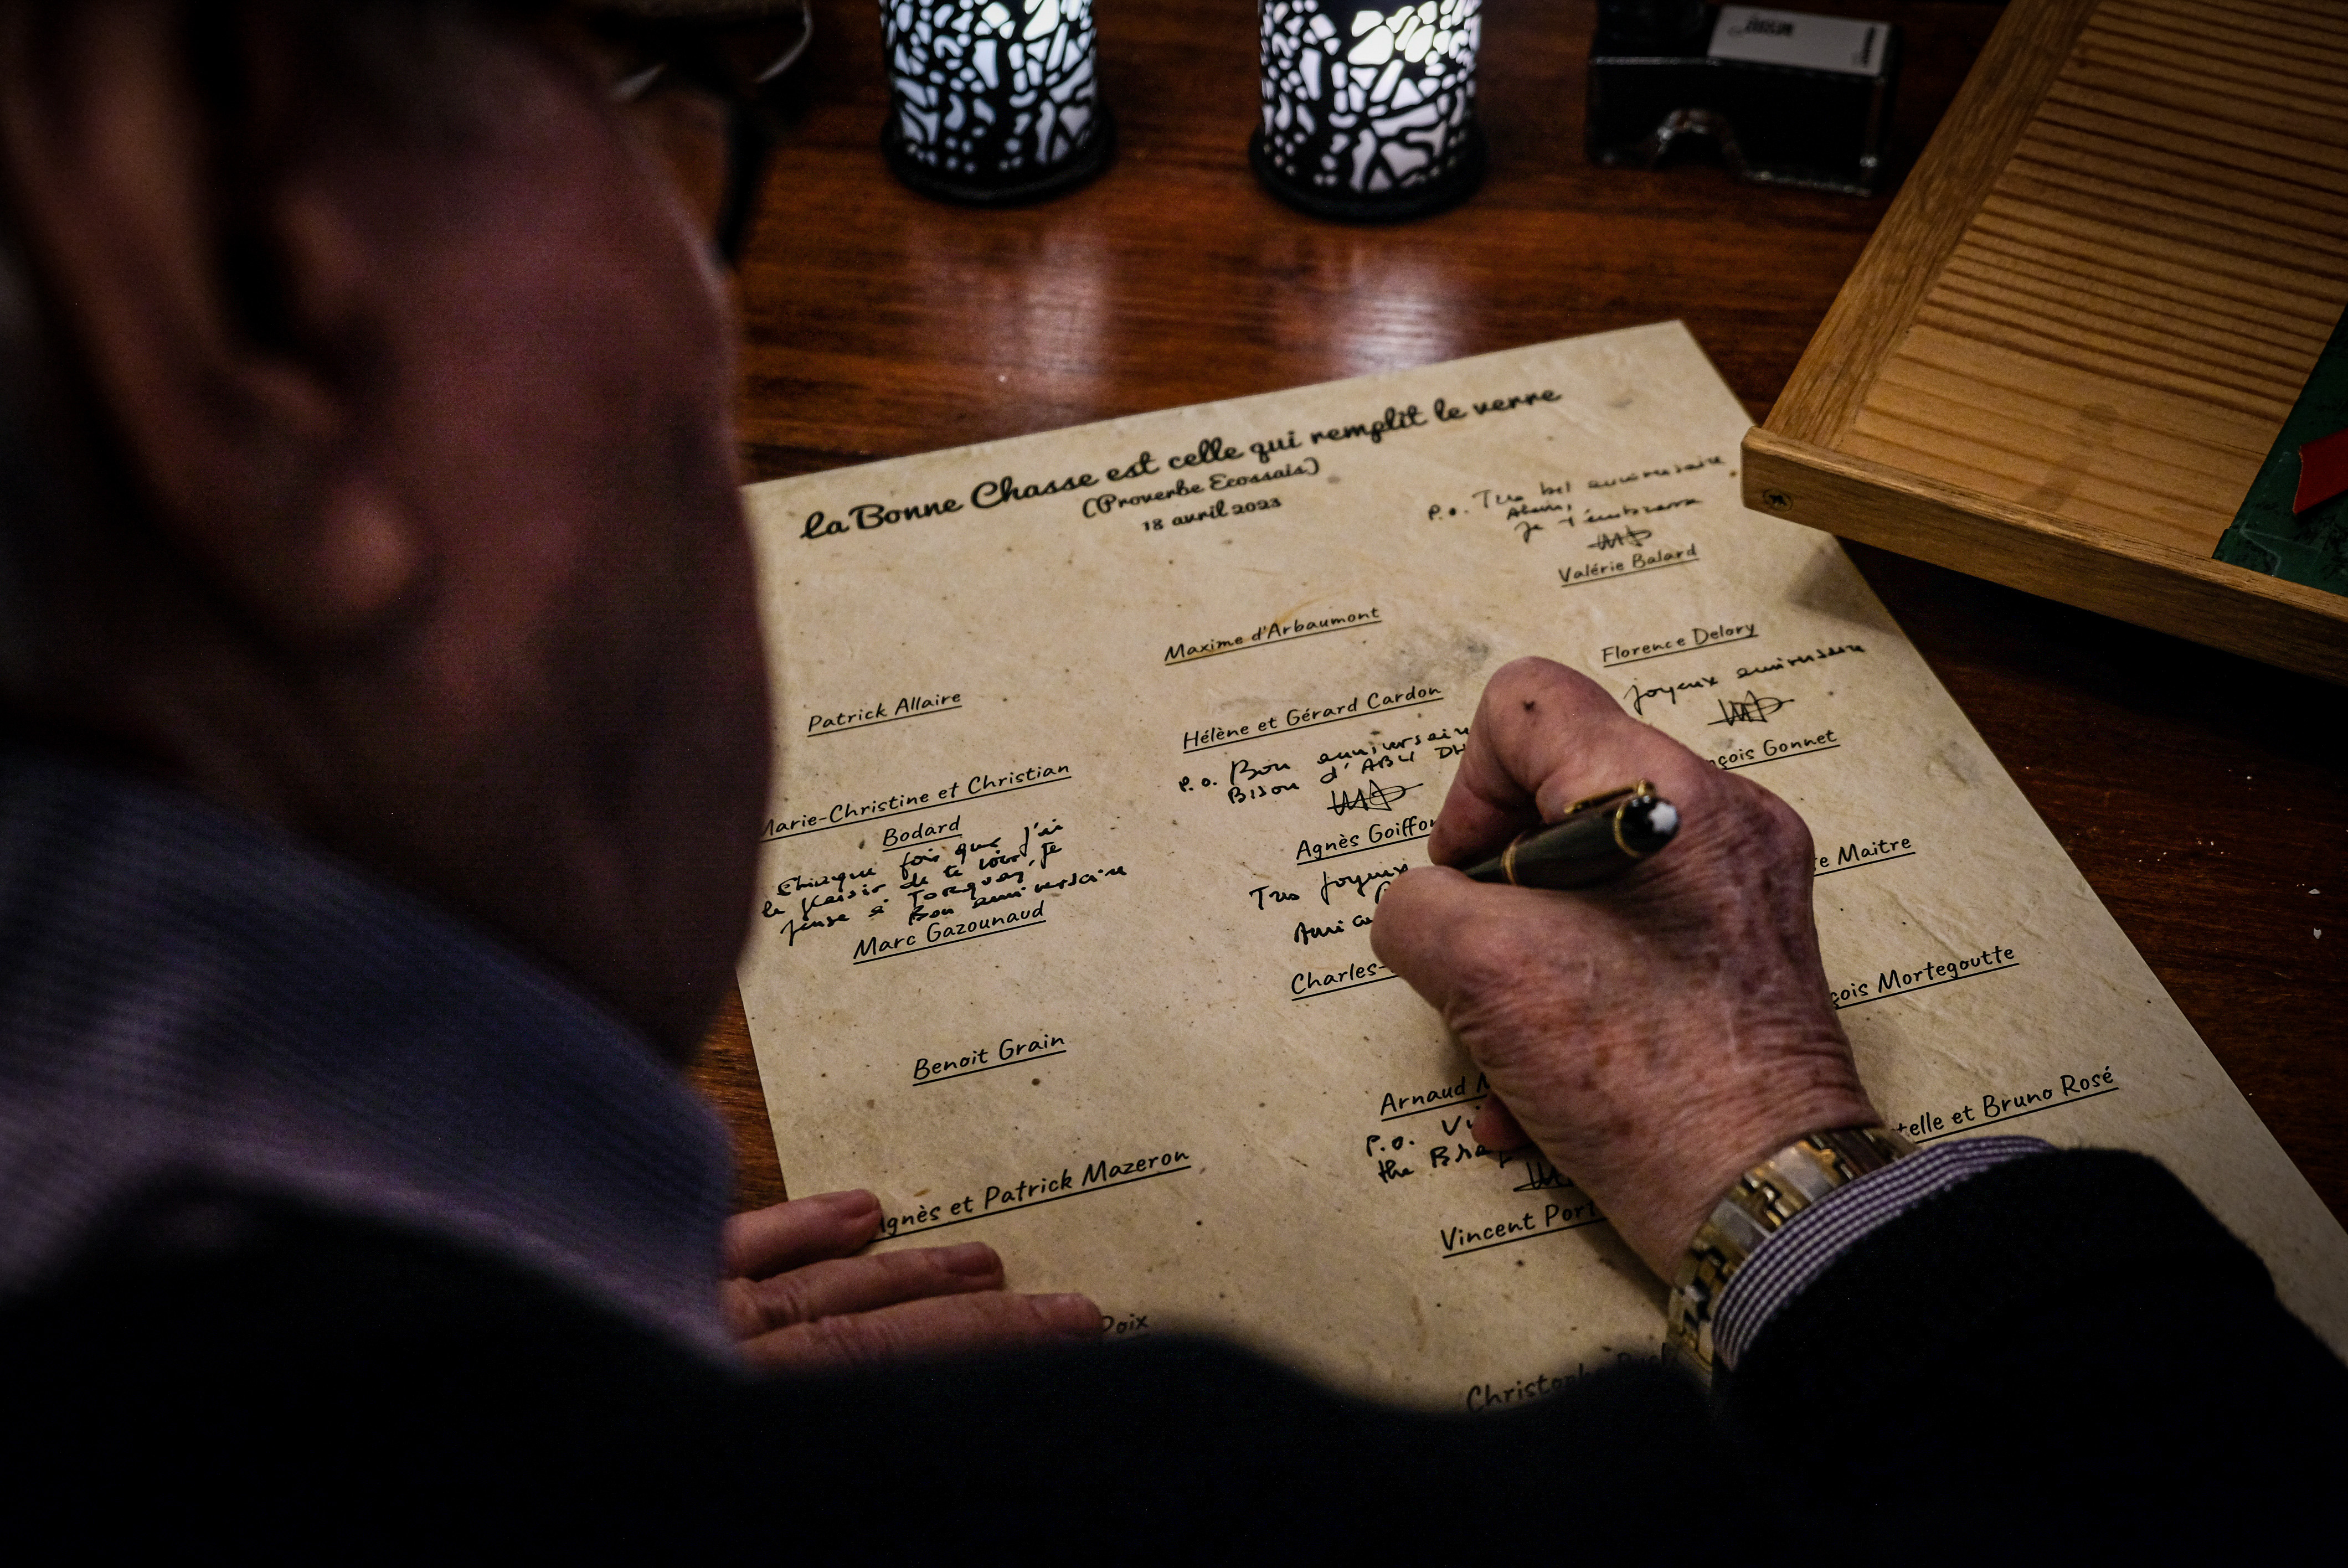 la Bonne Chasse est celle qui remplit le verre
(Proverbe Ecossais)
18 avril 2023
p.o. Tres bel anniversaire
Alain,
Je t'embrasse
Valérie Balard
Maxime d'Arbaumont
Florence Delory
Joyeux anniversaire
Patrick Allaire
Hélène et Gérard Cardon
p.o. Bon anniversaire
Bison d'ABU DH
çois Gonnet
Marie-Christine et Christian
Bodard
Chaque fois que j'ai
le plaisir de te voir, je
pense à Torquay,
Bon anniversaire
Agnès Goiffo
Tres Joyeux
Ami
e Maitre
Marc Gazounaud
Charles-
çois Mortegoutte
Benoit Grain
Arnaud M
p.o. Vi
the Bra
telle et Bruno Rosé
gnès et Patrick Mazeron
Vincent Port
Doix
Christoph